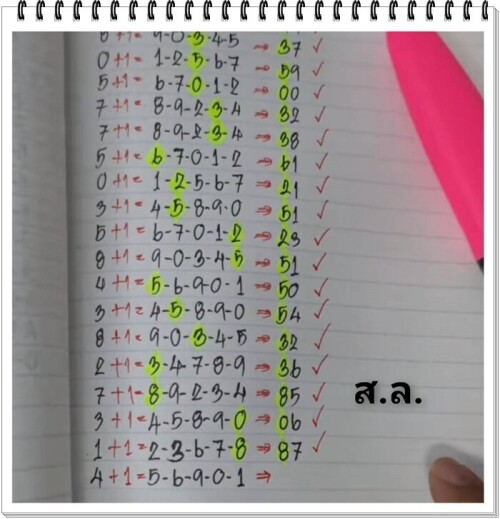 8+1= 9-0-3-4-5 ⇒ 37 ✓
0+1= 1-2-5-6-7 ⇒ 59 ✓
5+1= 6-7-0-1-2 ⇒ 00 ✓
7+1= 8-9-2-3-4 ⇒ 32 ✓
7+1= 8-9-2-3-4 ⇒ 38 ✓
5+1= 6-7-0-1-2 ⇒ 61 ✓
0+1= 1-2-5-6-7 ⇒ 21 ✓
3+1= 4-5-8-9-0 ⇒ 51 ✓
5+1= 6-7-0-1-2 ⇒ 23 ✓
8+1= 9-0-3-4-5 ⇒ 51 ✓
4+1= 5-6-9-0-1 ⇒ 50 ✓
3+1= 4-5-8-9-0 ⇒ 54 ✓
8+1= 9-0-3-4-5 ⇒ 32 ✓
2+1= 3-4-7-8-9 ⇒ 36 ✓
7+1= 8-9-2-3-4 ⇒ 85 ✓
ส.ล.
3+1= 4-5-8-9-0 ⇒ 06 ✓
1+1= 2-3-6-7-8 ⇒ 87 ✓
4+1= 5-6-9-0-1 ⇒